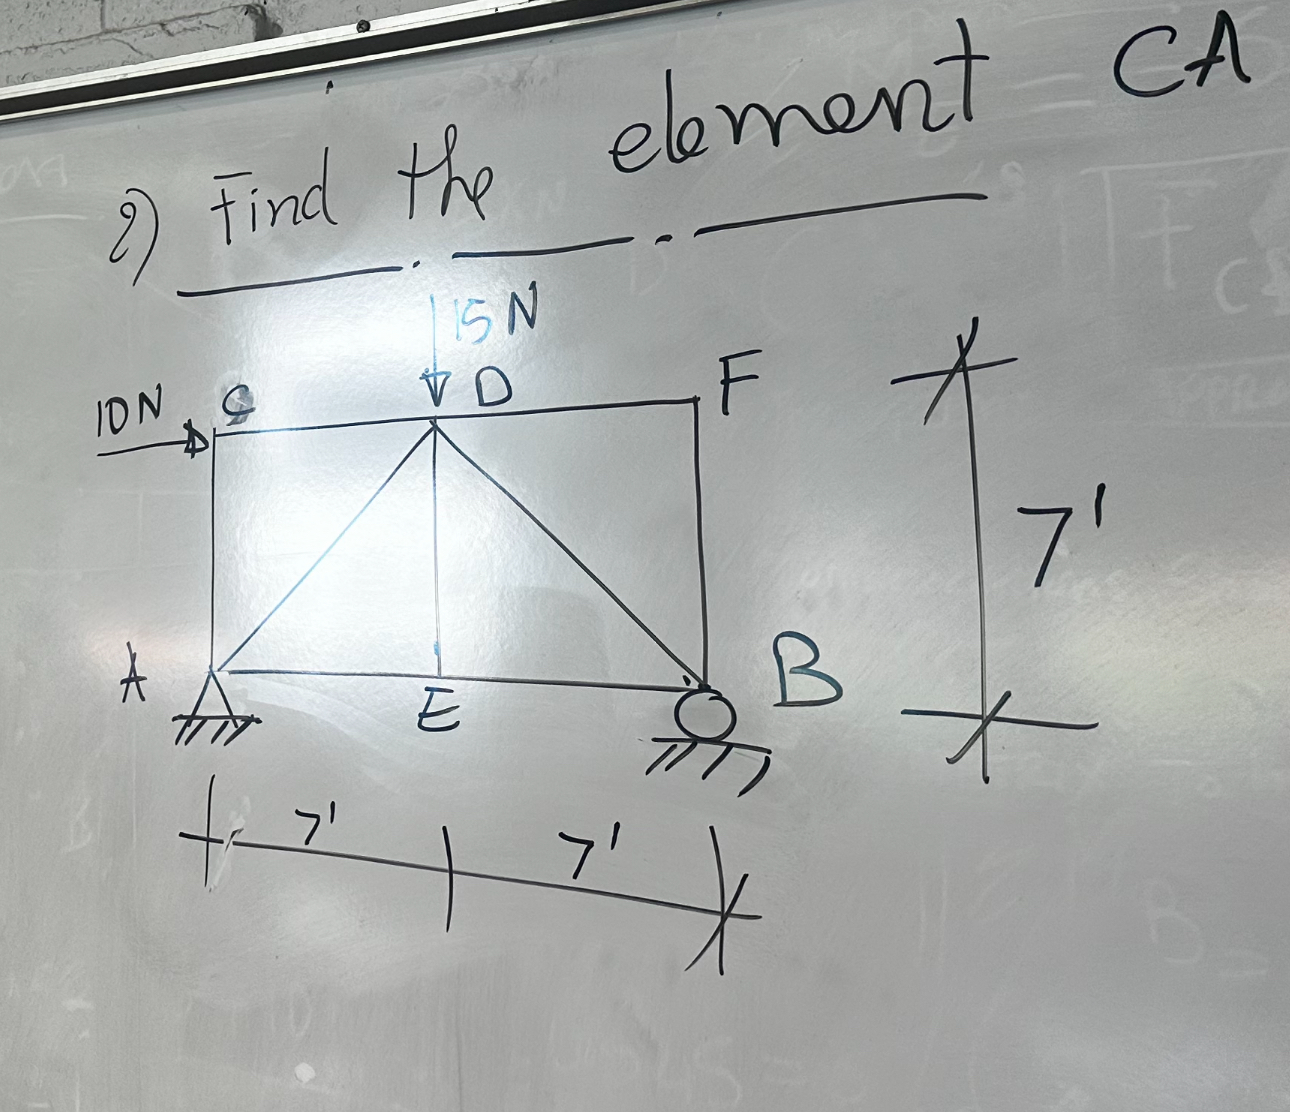 2) Find the element CA
15 N
10 N
C
D
F
7'
A
E
B
7'
7'